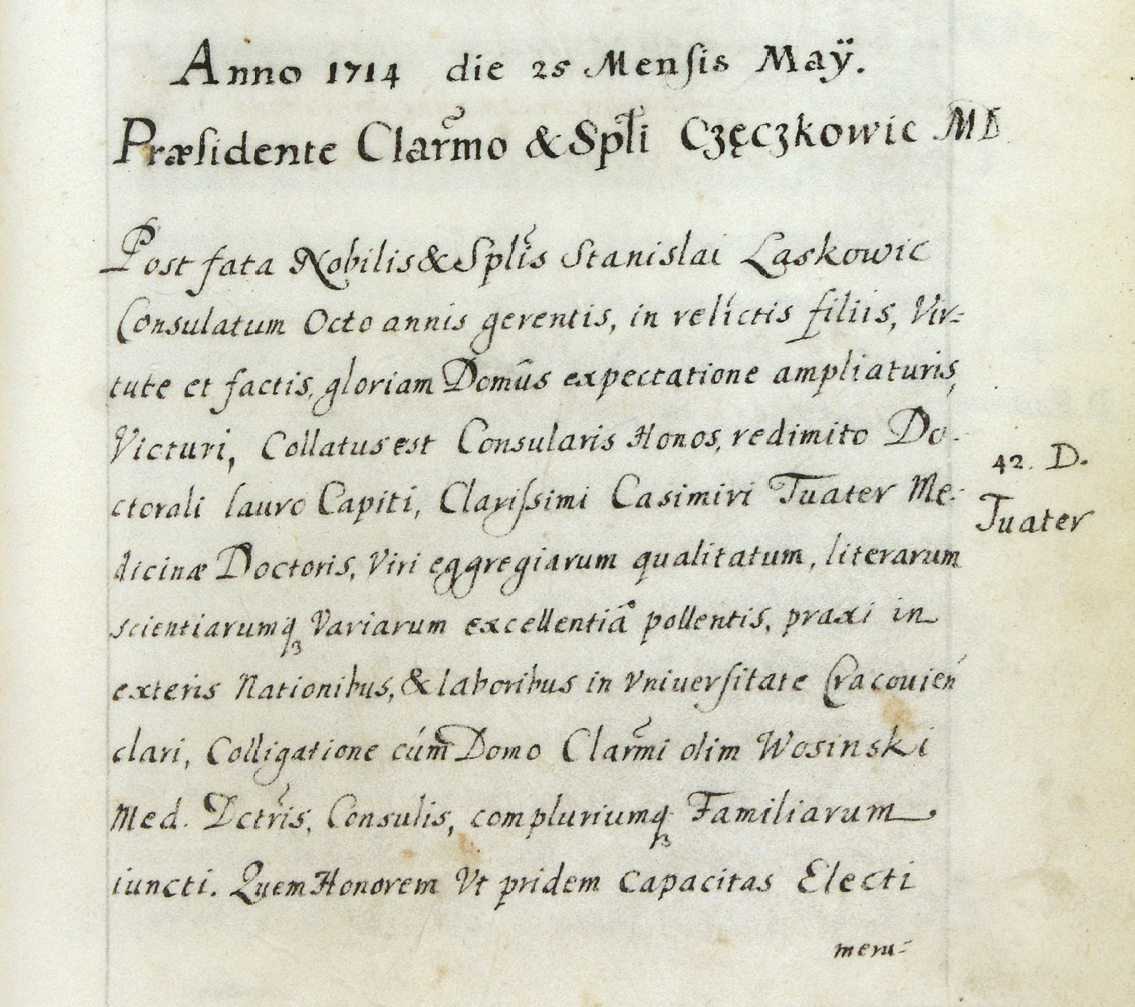 Anno 1714 die 25 Mensis Maÿ.
Præsidente Clarm̃o & Spłi Częczkowic MD
Post fata Nobilis & Spl̃is Stanislai Laskowic
Consulatum Octo annis gerentis, in relictis filiis, Vir=
tute et factis, gloriam Domûs expectatione ampliaturis,
Victuri, Collatus est Consularis Honos, redimito Do-
42. D.
ctorali lauro Capiti, Clarissimi Casimiri Tuater Me-
Tuater
dicinæ Doctoris, Viri eggregiarum qualitatum, literarum
scientiarumqꝫ Variarum excellentiâ pollentis, praxi in
exteris Nationibus, & laboribus in Vniuersitate Cracouień
clari, Colligatione cúm Domo Clarm̃i olim Wosinski
Med. Dctr̃is, Consulis, compluriumqꝫ Familiarum
iuncti. Quem Honorem Vt pridem Capacitas Electi
meru=